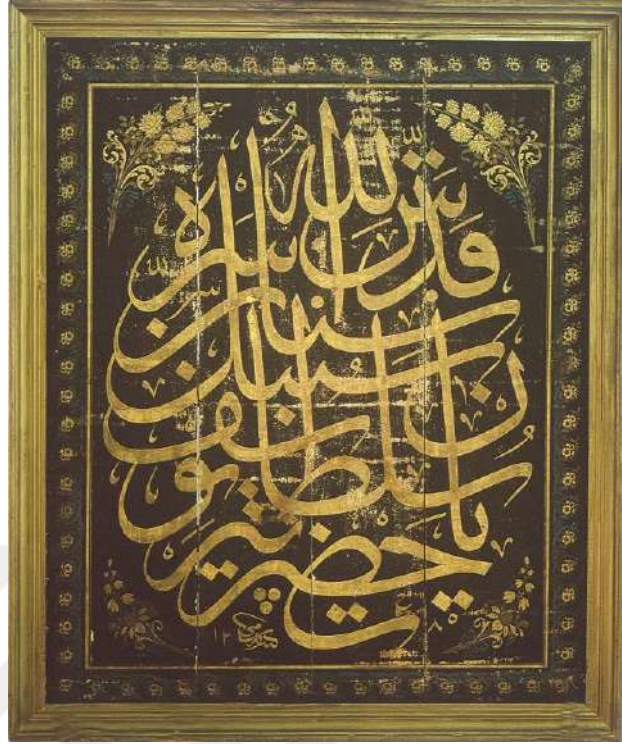 يا حضرت پير
يوسف سلطان
سنبل سنان
قدس الله سره